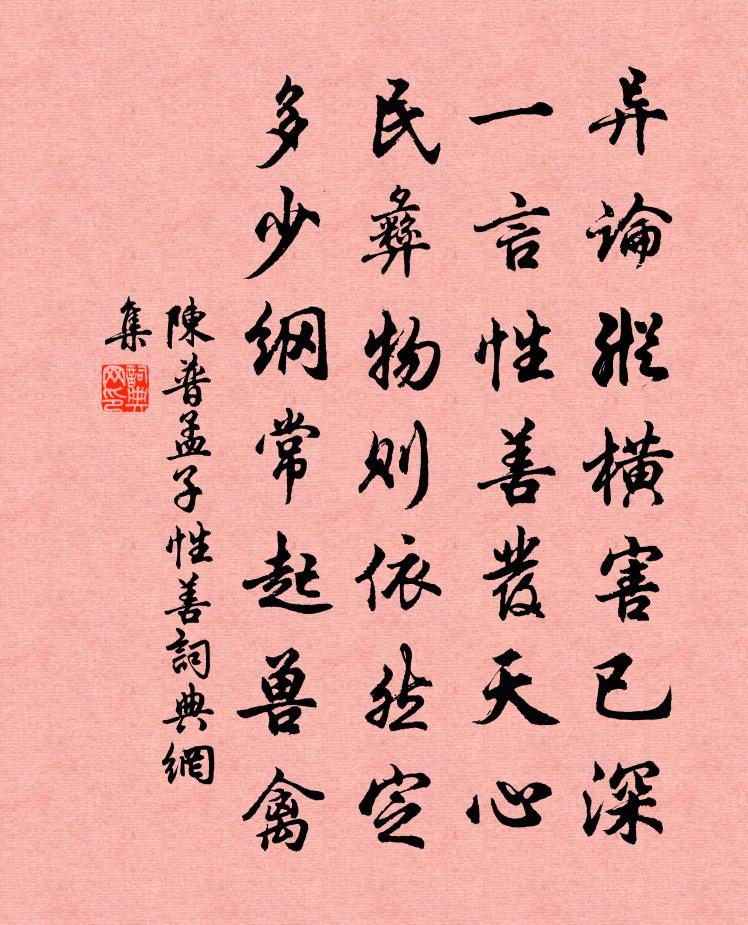 异论纵横害已深
一言性善發天心
民彝物则依然定
多少纲常起兽禽
陳普孟子性善詞典網
集
詞典网印